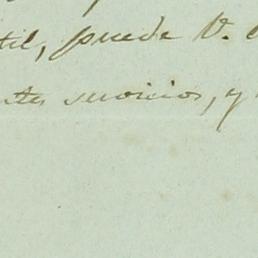 til, puede V.
servicios, y